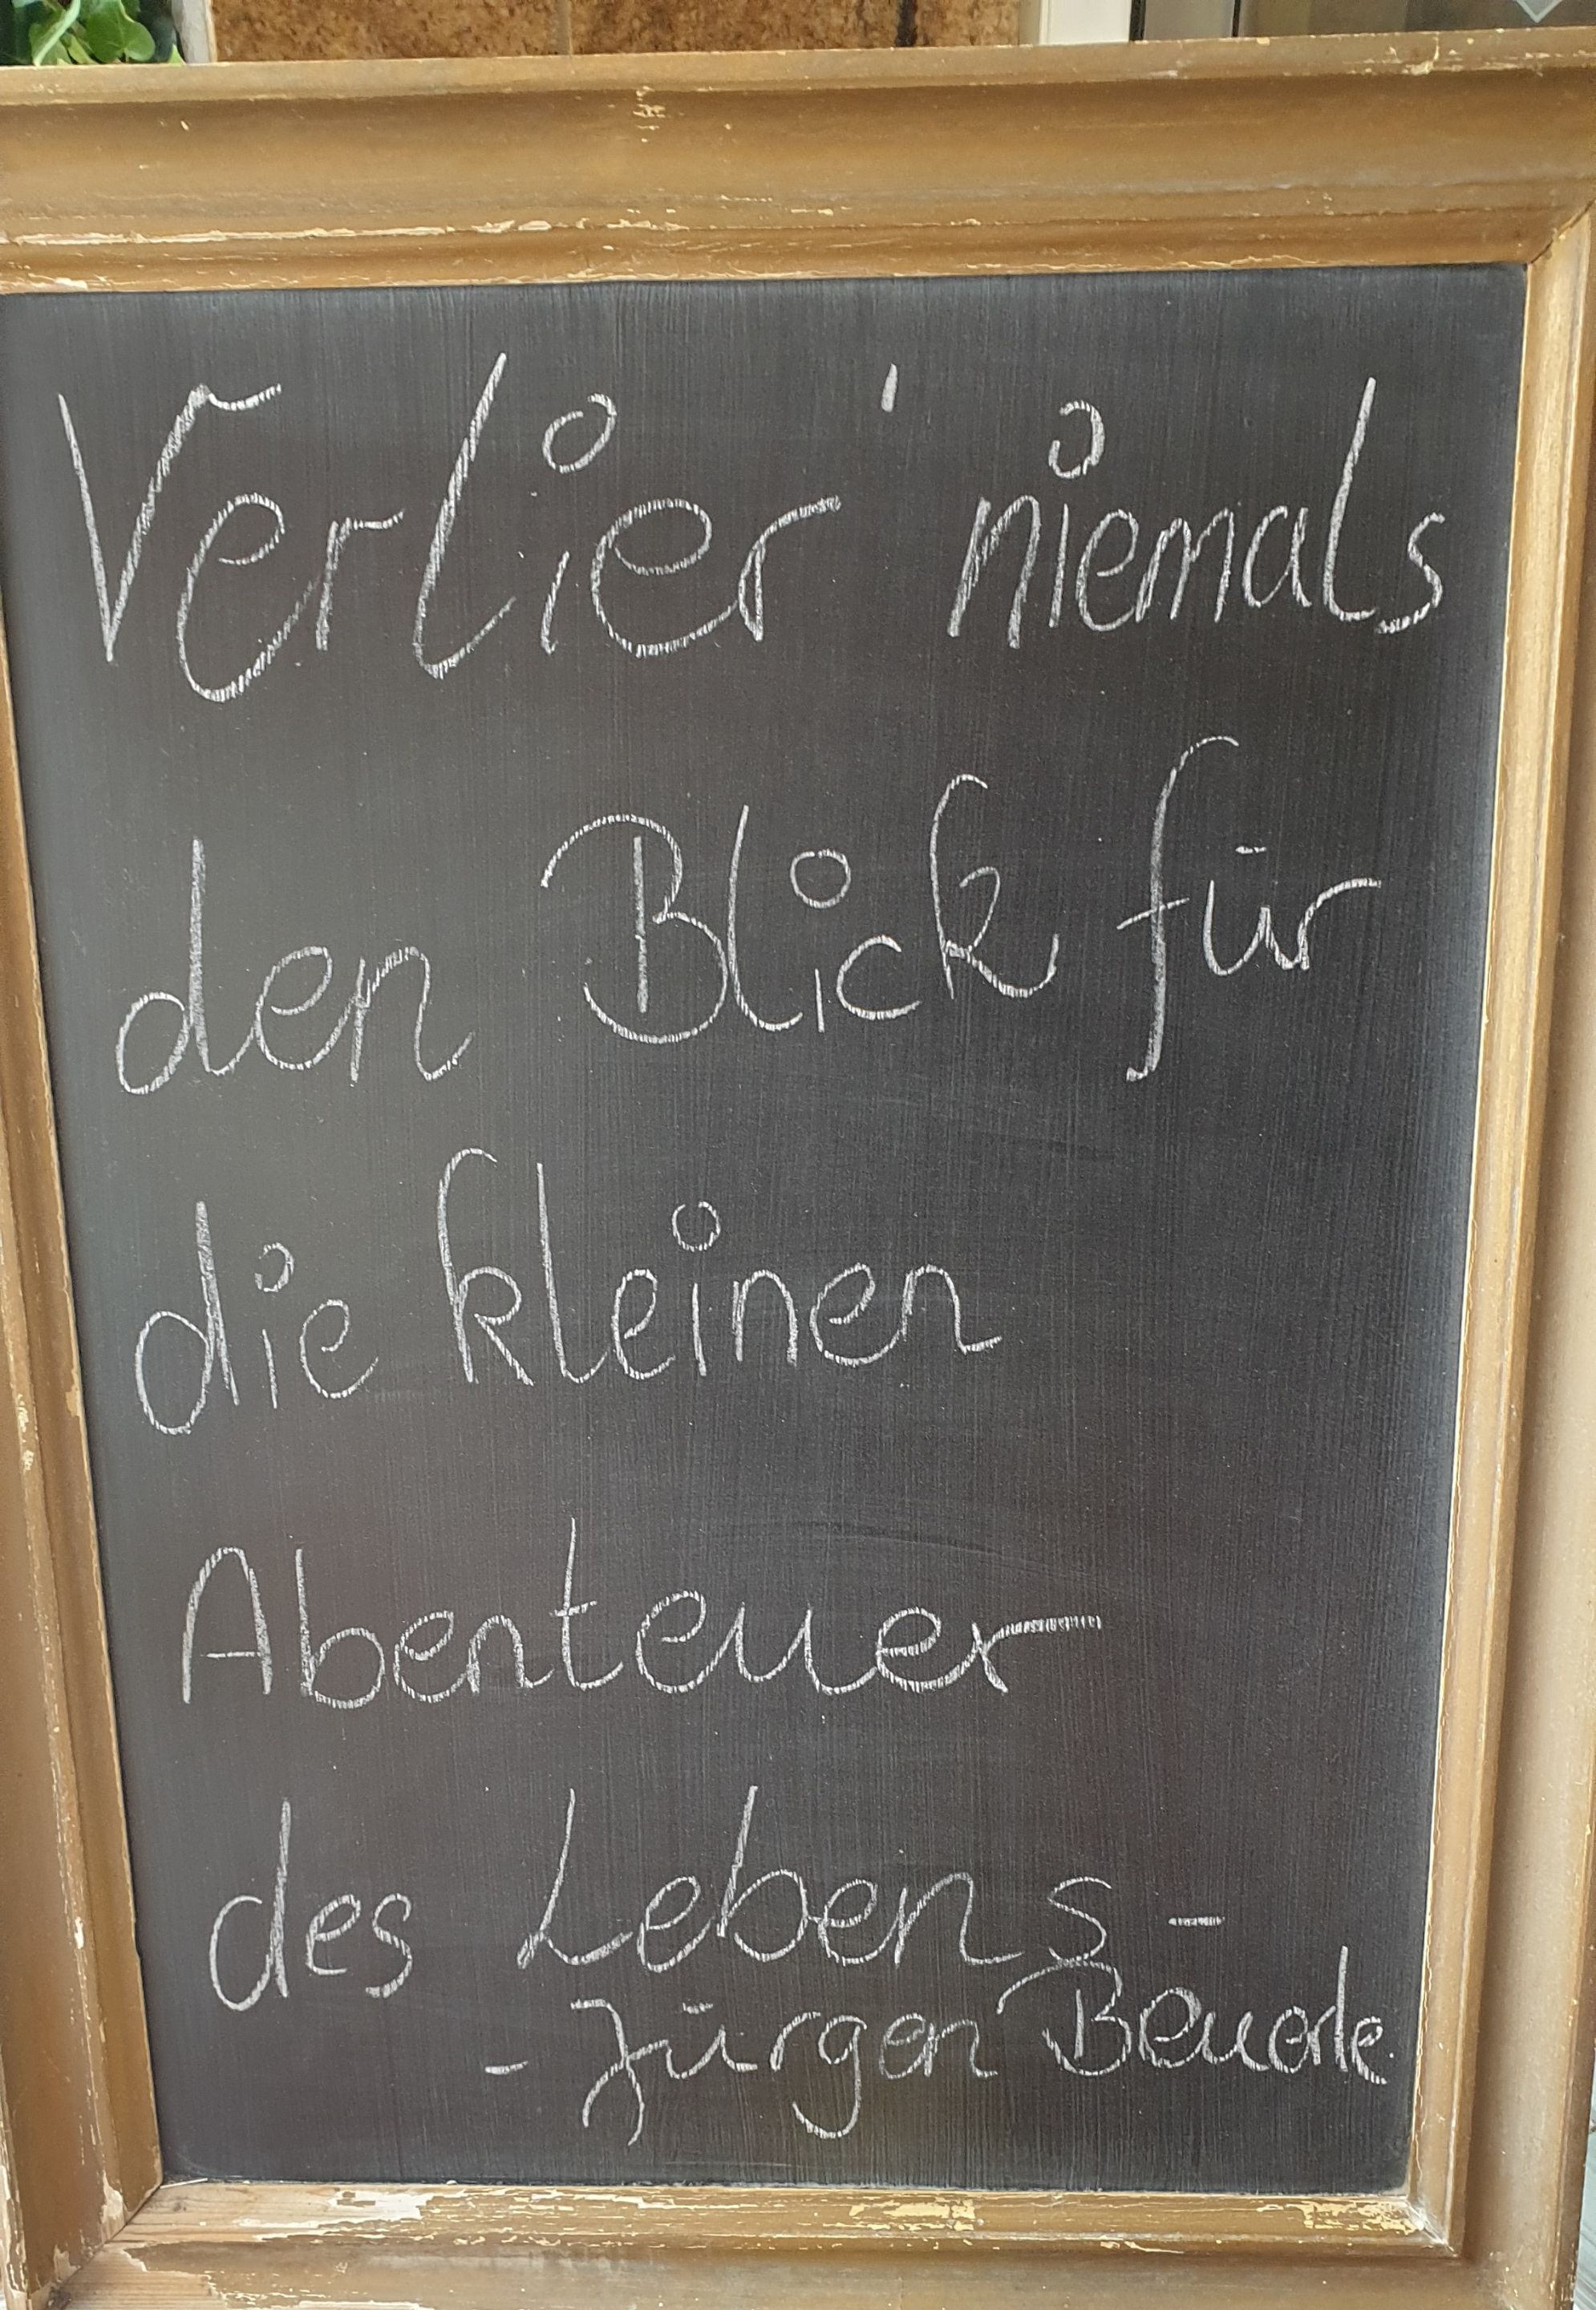 Verlier' niemals
den Blick für
die kleinen
Abenteuer
des Lebens -
- Jürgen Beuerle